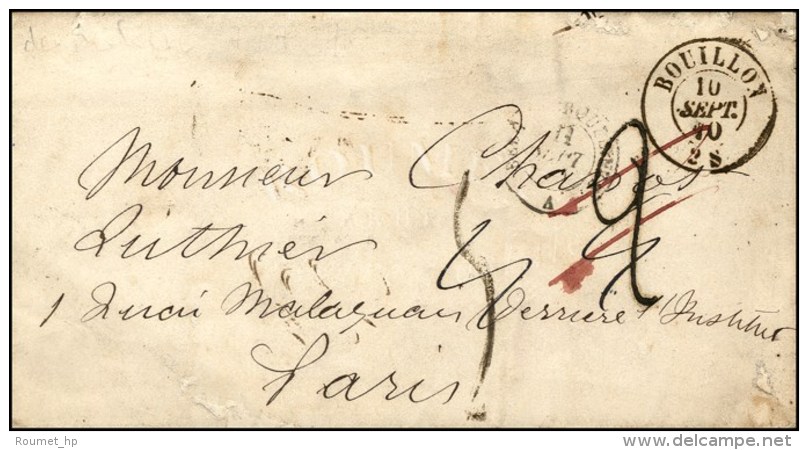 BOUILLON
10
SEPT.
70
2 S
BOUILLON
11
SEPT
A
Monsieur Chanot
Luthier
1 Quai Malaquais Derrière l'Institut
Paris
5
2
Roumet_hp
www.delcampe.net